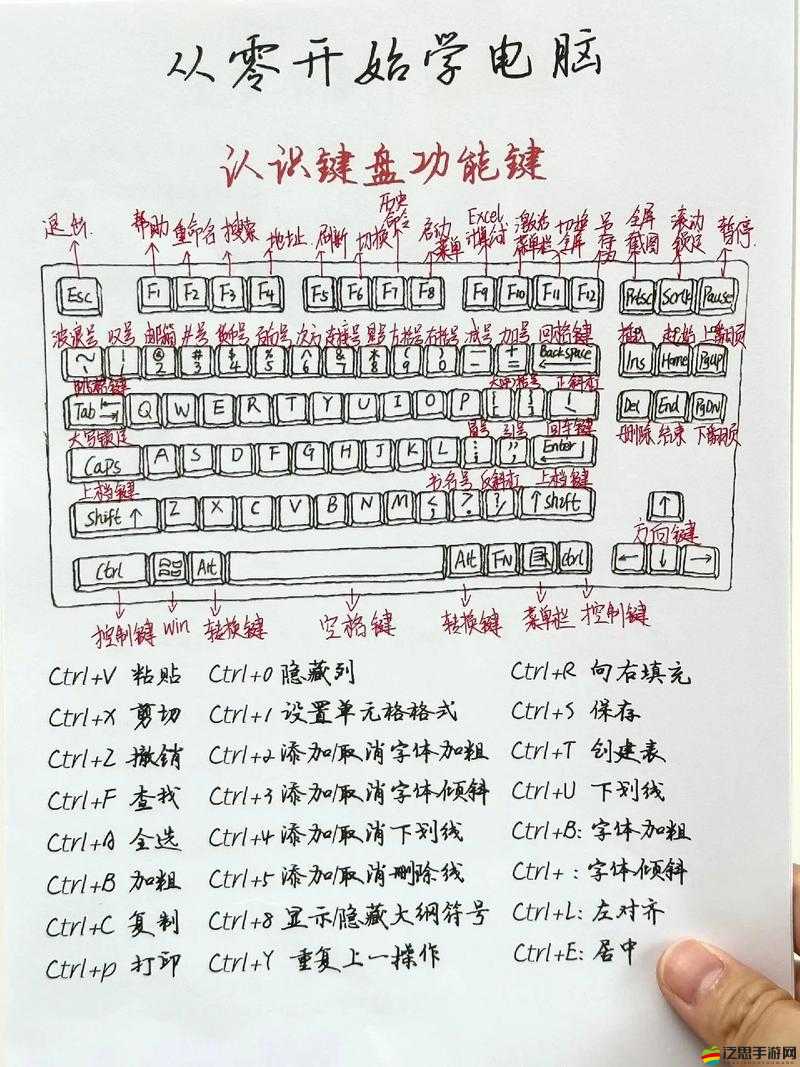 从零开始学电脑
认识键盘功能键
退出 帮助 重命名 搜索 地址 刷新 切换 历史命令 启动菜单 Excel计算公式 激活菜单栏 切换全屏 另存为 全屏截图 滚动锁定 暂停
Esc F1 F2 F3 F4 F5 F6 F7 F8 F9 F10 F11 F12 Prtsc Scrlk Pause
波浪号 叹号 邮箱 井号 货币号 百分号 次方 连接号 星号 左括号 右括号 减号 加号 回格键 插入 起始 上翻页
~ ! @ 2 # 3 $ 4 % 5 ^ 6 & 7 * 8 ( 9 ) 0 — + = Backspace Ins Home PgUp
大中括号 正斜杠
Tab Q W E R T Y U I O P Del End PgDn
大写锁定 冒号 引号 回车键 删除 结束 下翻页
Caps A S D F G H J K L Enter
上档键 书名号 反斜杠 上档键
Shift ↑ Z X C V B N M < ? ↑ Shift ↑
方向键
Ctrl Alt Alt FN Ctrl ← ↓ →
控制键 Win 转换键 空格键 转换键 菜单栏 控制键
Ctrl+V 粘贴 Ctrl+0 隐藏列 Ctrl+R 向右填充
Ctrl+X 剪切 Ctrl+1 设置单元格格式 Ctrl+S 保存
Ctrl+Z 撤销 Ctrl+2 添加/取消字体加粗 Ctrl+T 创建表
Ctrl+F 查找 Ctrl+3 添加/取消字体倾斜 Ctrl+U 下划线
Ctrl+A 全选 Ctrl+4 添加/取消下划线 Ctrl+B: 字体加粗
Ctrl+B 加粗 Ctrl+5 添加/取消删除线 Ctrl+ : 字体倾斜
Ctrl+C 复制 Ctrl+8 显示/隐藏大纲符号 Ctrl+L: 左对齐
Ctrl+P 打印 Ctrl+Y 重复上一操作 Ctrl+E: 居中
泛思手游网